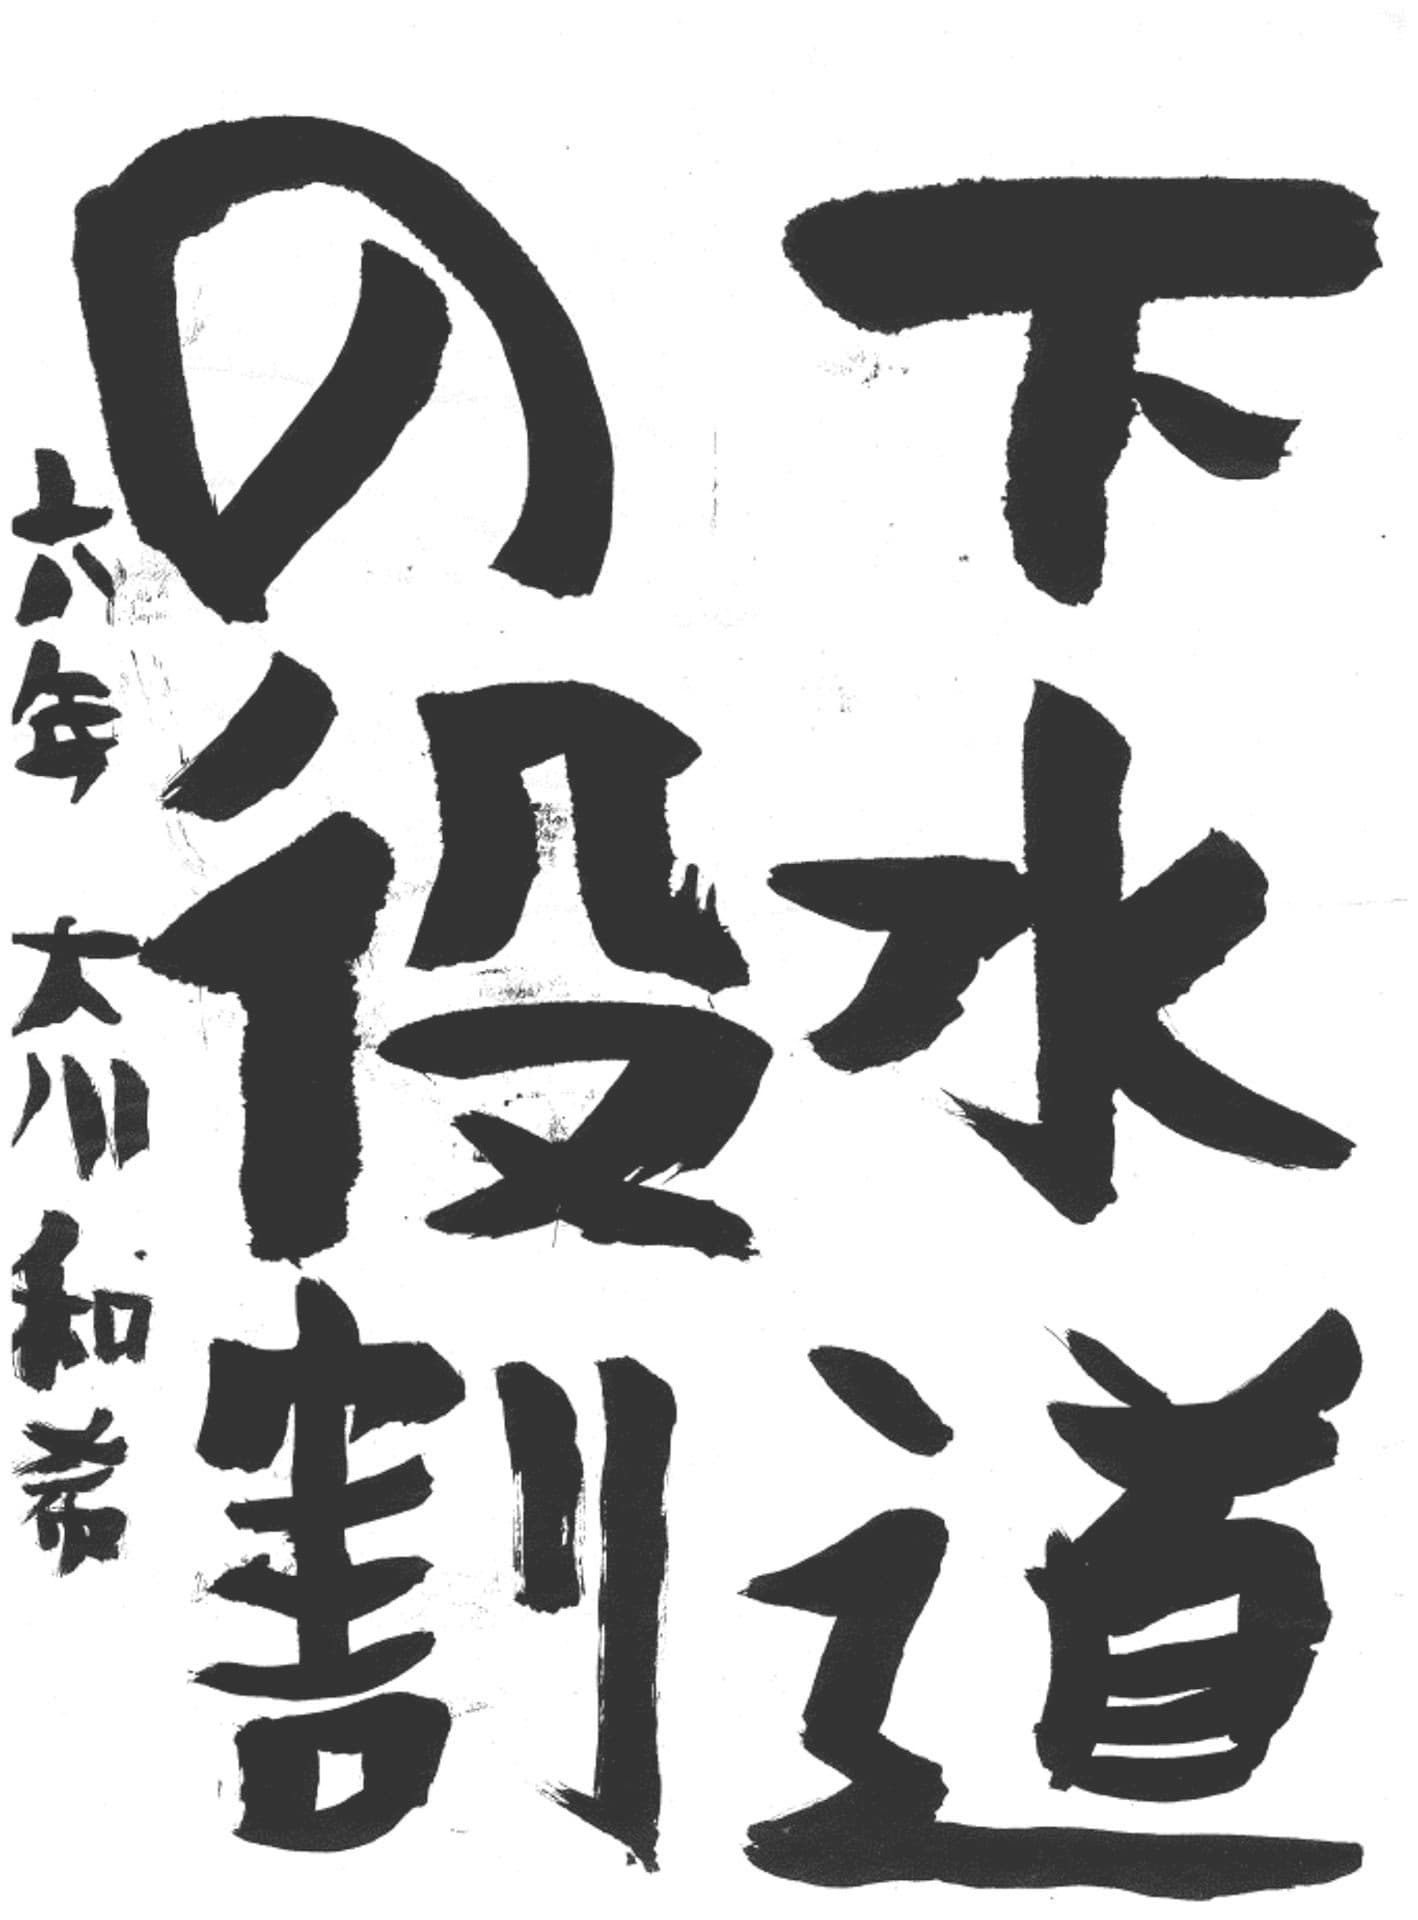 下水道
の役割
六年 大川和希